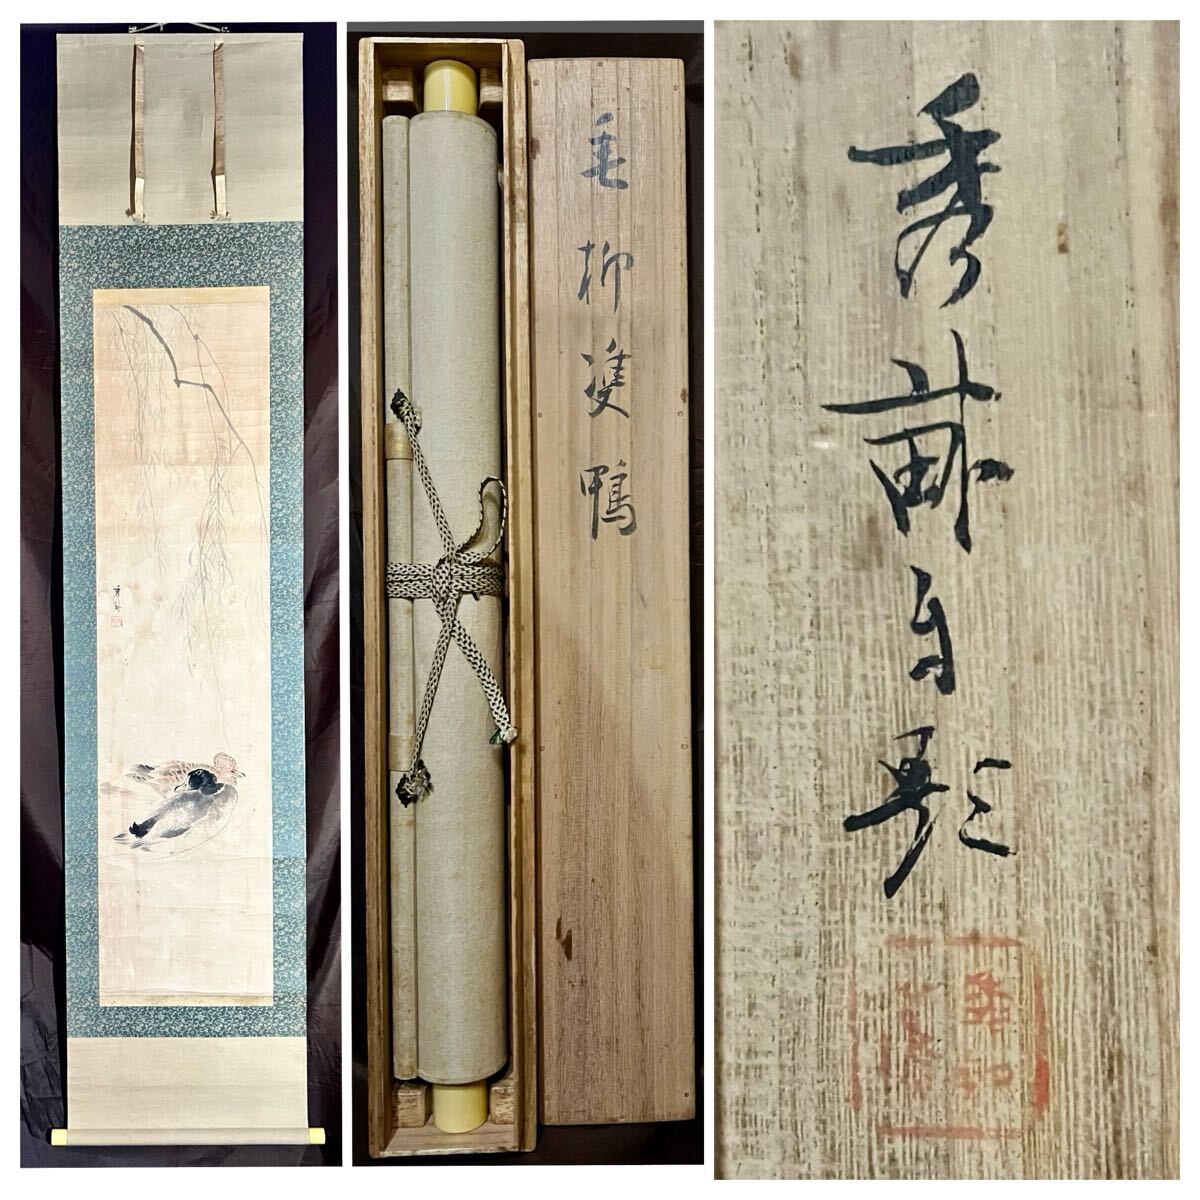 垂柳雙鴨
秀畝自題
秀畝